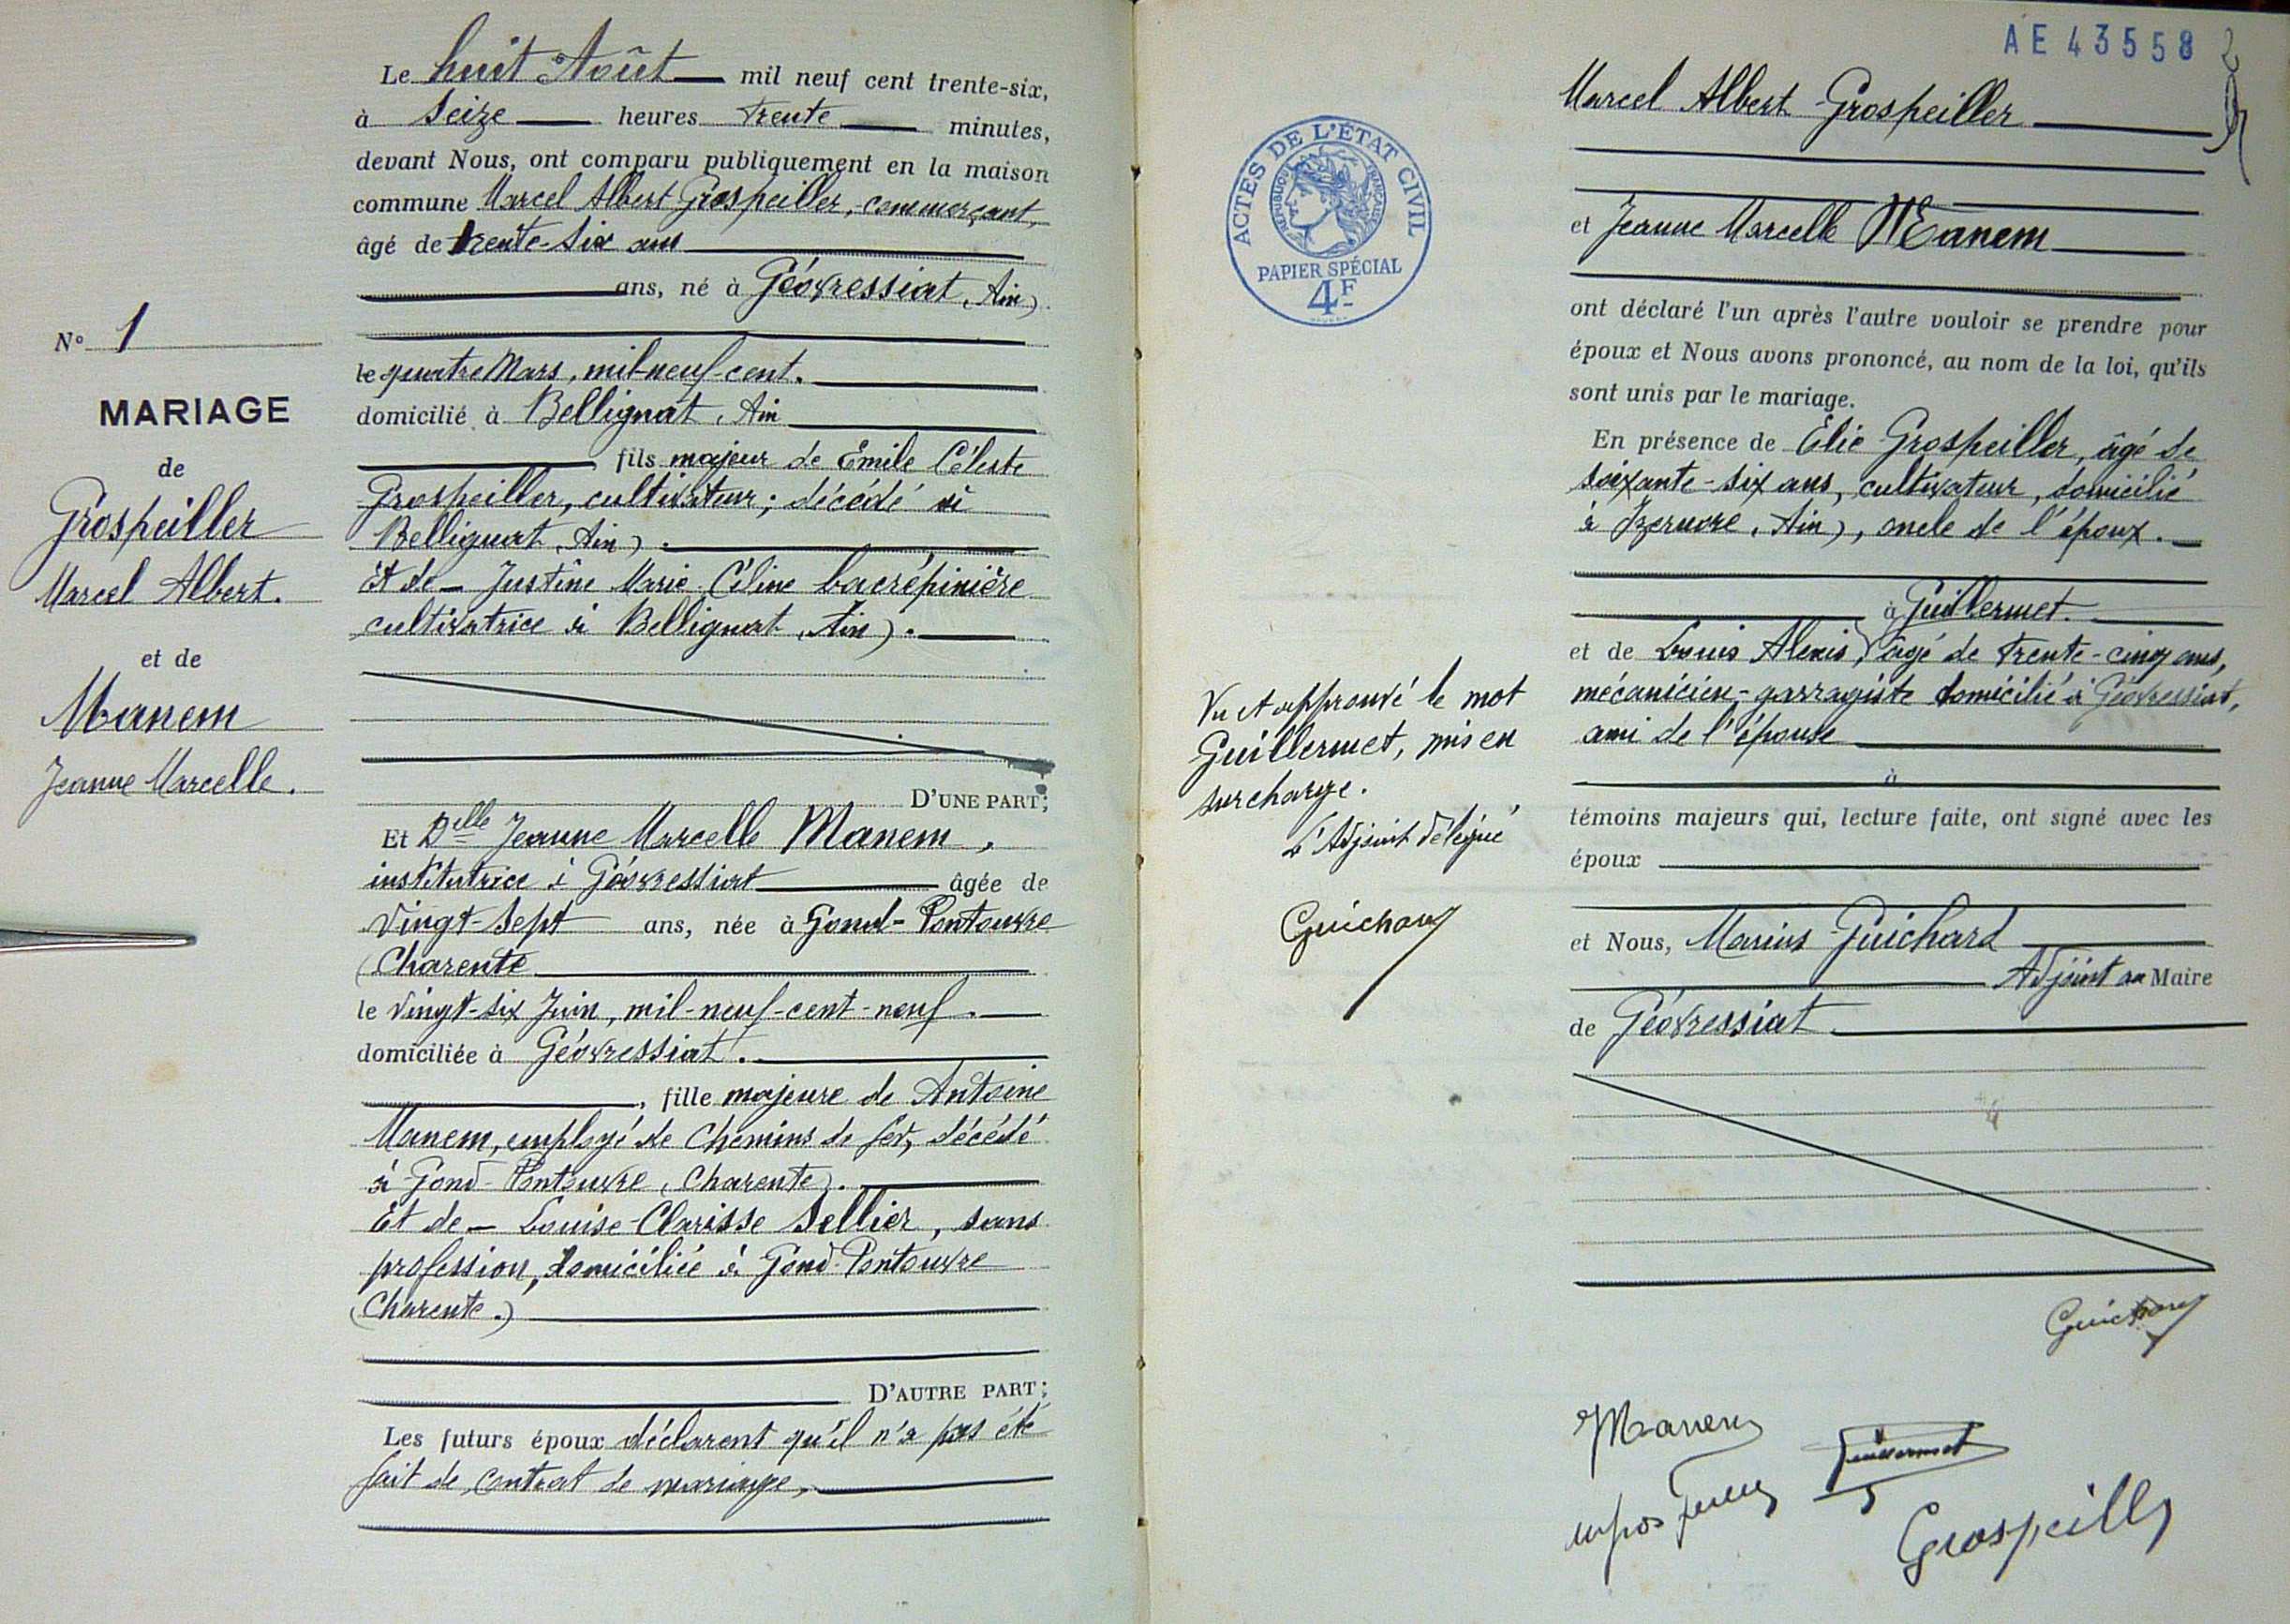 Le huit Août mil neuf cent trente-six,
à Seize heures trente minutes,
devant Nous, ont comparu publiquement en la maison
commune Marcel Albert Grospeiller, commerçant,
âgé de trente-six ans
ans, né à Géovressiat (Ain)
le quatre Mars, mil-neuf-cent.
domicilié à Bellignat (Ain
fils majeur de Émile Céleste
Grospeiller, cultivateur; décédé à
Bellignat (Ain).
Et de Justine Marie Céline Lacrépinière
cultivatrice à Bellignat (Ain).
D'UNE PART;
Et Delle Jeanne Marcelle Manem,
institutrice à Géovressiat âgée de
Vingt-Sept ans, née à Gond-Pontouvre
(Charente
le Vingt-six Juin, mil-neuf-cent-neuf.
domiciliée à Géovressiat.
, fille majeure de Antoine
Manem, employé de Chemins de fer, décédé
à Gond-Pontouvre (Charente).
Et de Louise Clarisse Sellier, sans
profession, domiciliée à Gond-Pontouvre
(Charente.)
D'AUTRE PART;
Les futurs époux déclarent qu'il n'a pas été
fait de contrat de mariage,
N° 1
MARIAGE
de
Grospeiller
Marcel Albert.
et de
Manem
Jeanne Marcelle.
AE 43558
2
Marcel Albert Grospeiller
et Jeanne Marcelle Manem
ont déclaré l'un après l'autre vouloir se prendre pour
époux et Nous avons prononcé, au nom de la loi, qu'ils
sont unis par le mariage.
En présence de Élie Grospeiller, âgé de
soixante-six ans, cultivateur, domicilié
à Izernore (Ain), oncle de l'époux.
à Guillermet.
et de Louis Alexis, âgé de trente-cinq ans,
mécanicien-garragiste domicilié à Géovressiat,
ami de l'épouse
à
témoins majeurs qui, lecture faite, ont signé avec les
époux
et Nous, Marius Guichard
Adjoint au Maire
de Géovressiat
ACTES DE L'ÉTAT CIVIL
RÉPUBLIQUE FRANÇAISE
PAPIER SPÉCIAL
4F
Vu et approuvé le mot
Guillermet, mis en
surcharge.
L'Adjoint délégué
Guichard
Guichard
Manem
Guillermet
Grospeiller